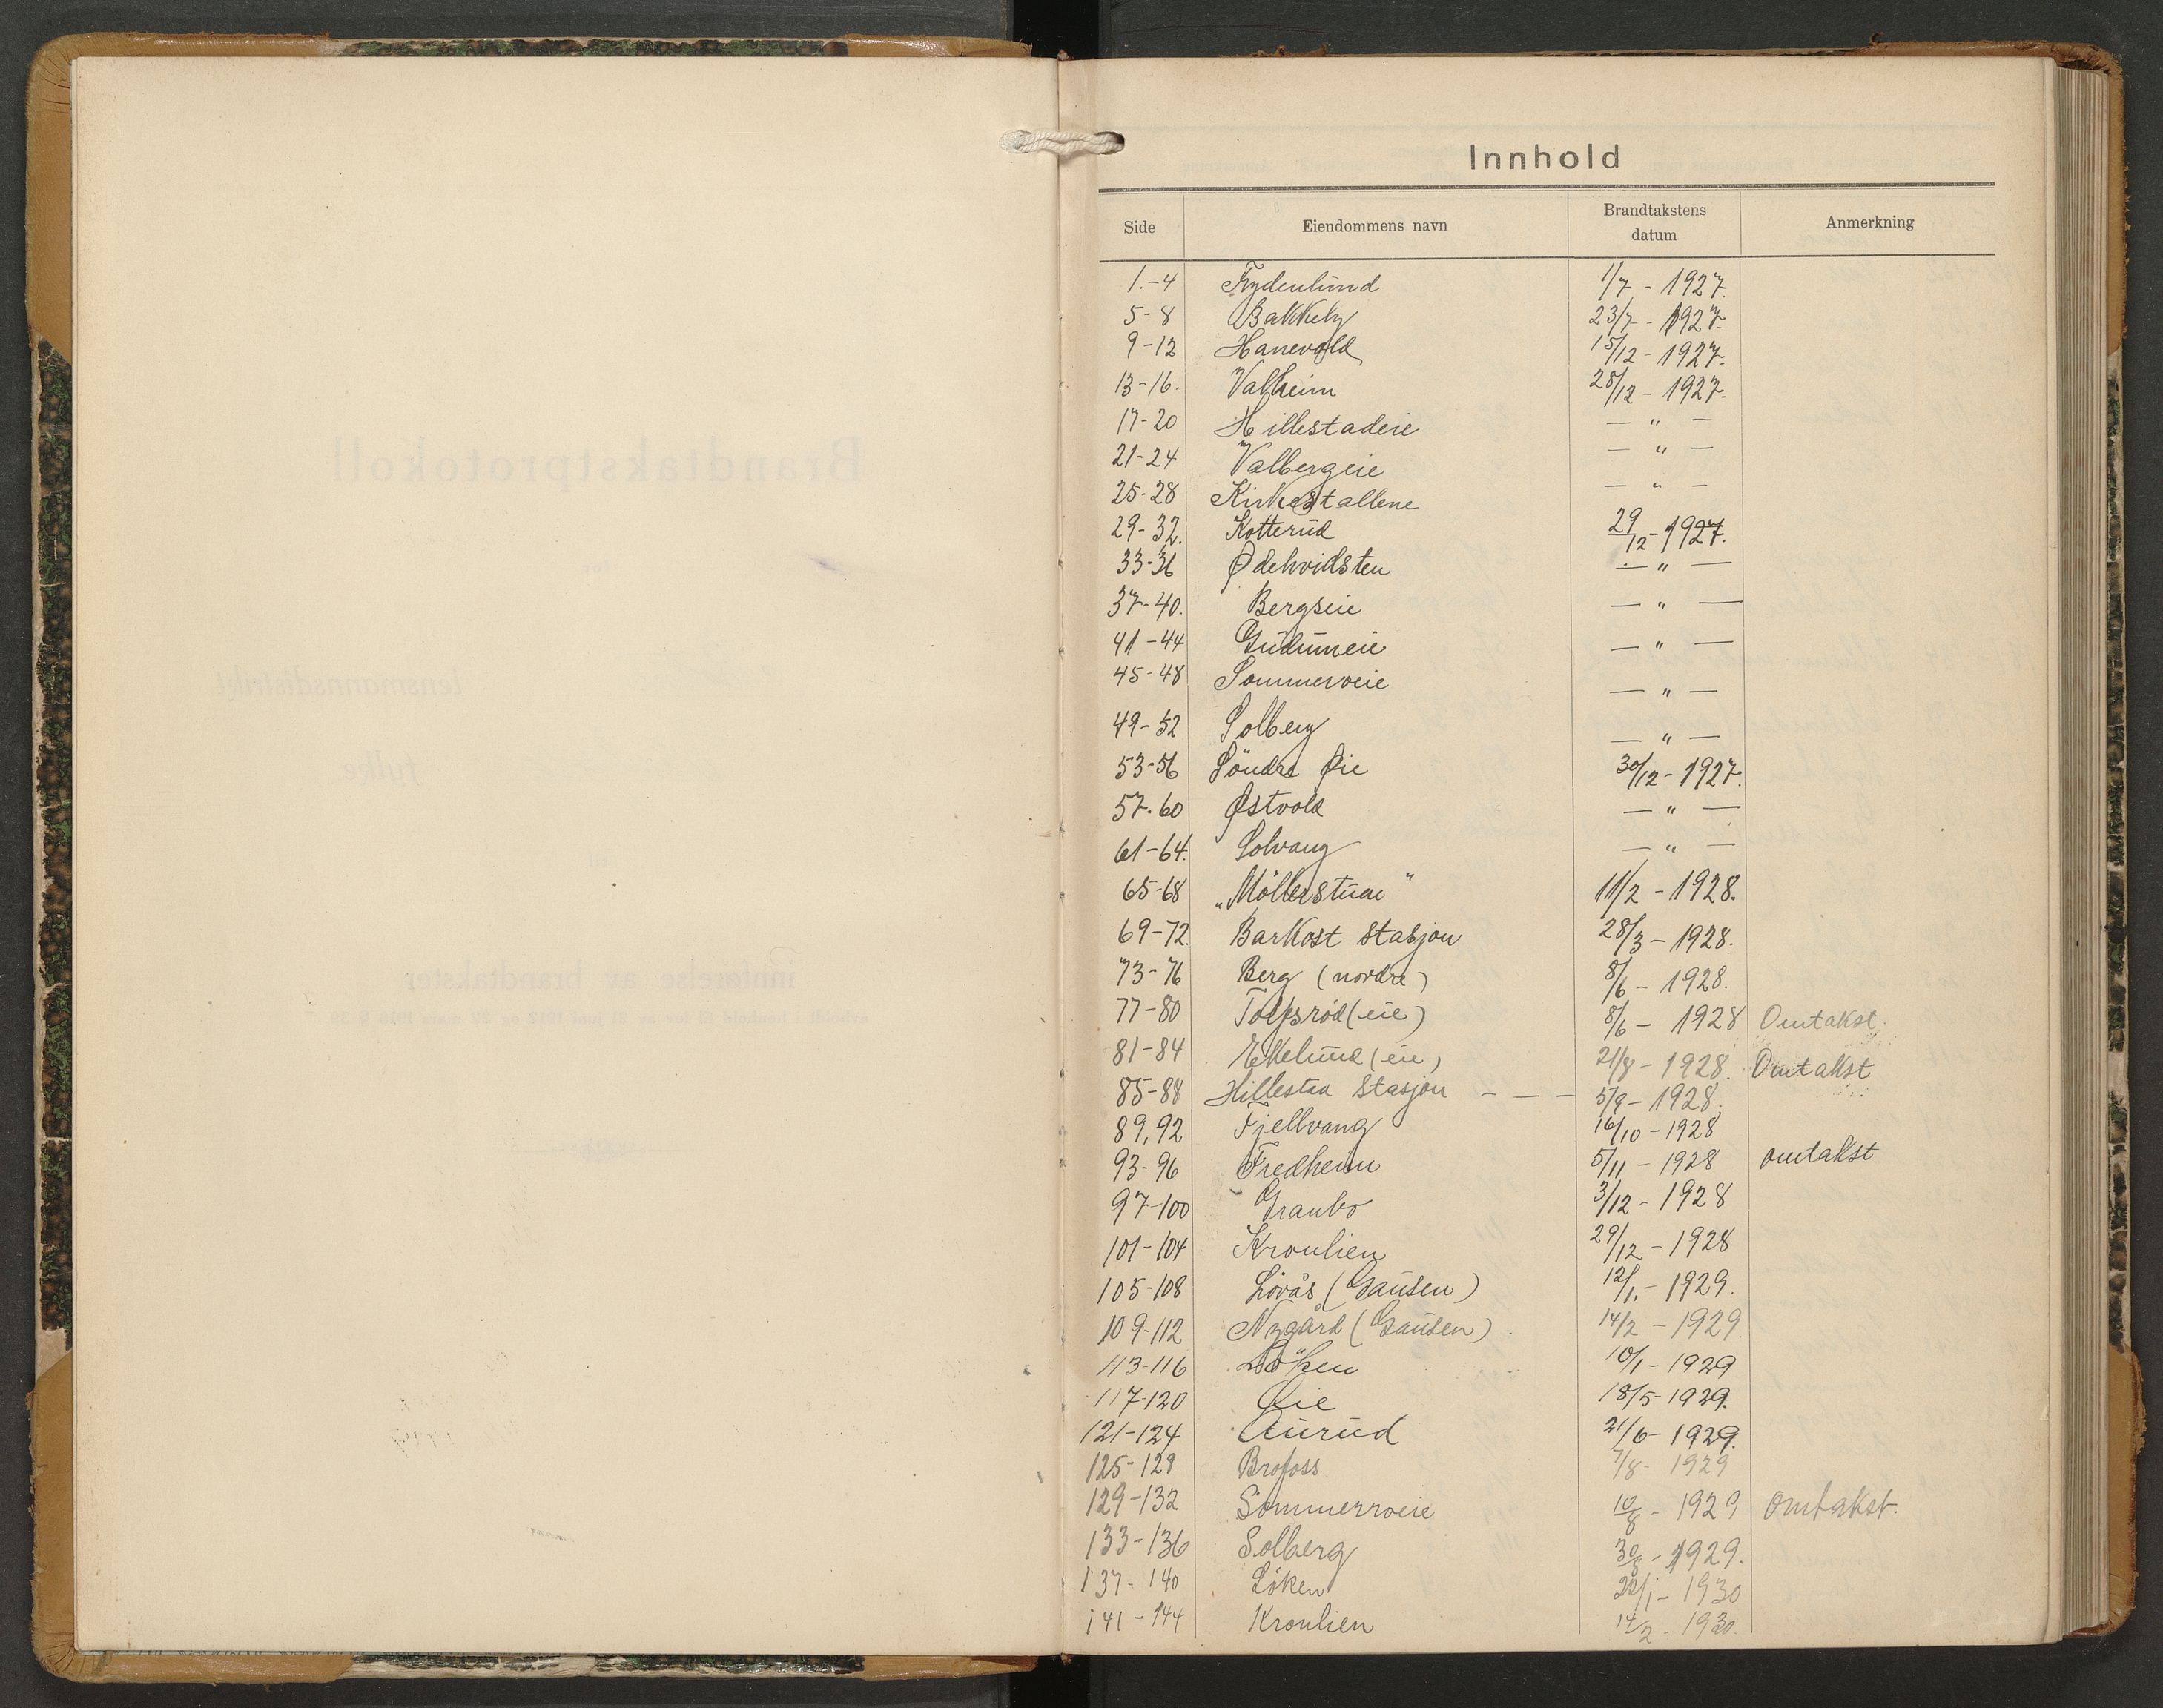 Innhold
Side Eiendommens navn Brandtakstens datum Anmerkning
1.-4 Frydenlund 1/7 - 1927.
5-8 Bakkely 23/7 - 1927.
9-12 Hanevold 15/12 - 1927.
13-16. Valheim 28/12 - 1927.
17-20 Hillestadeie — " —
21-24 Valbergeie — " —
25-28 Kirkestallene — " —
29-32. Kotterud 29/12 - 1927.
33-36 Ødehvidsten — " —
37-40. Bergseie — " —
41-44 Gudumeie — " —
45-48 Sommerveie — " —
49-52 Solberg — " —
53-56 Söndre Øie 30/12 - 1927.
57-60 Østvold — " —
61-64. Solvang — " —
65-68 „Möllerstuen" 11/2 - 1928.
69-72. Barkost stasjon 28/3 - 1928.
73-76 Berg (nordre) 8/6 - 1928.
77-80 Tolfsrød (eie) 8/6 - 1928 Omtakst.
81-84 Ekelund (eie) 21/8 - 1928. Omtakst
85-88 Hillestad Stasjon - - - 5/9 - 1928.
89,92 Fjellvang 16/10 - 1928
93-96 Fredheim 5/11 - 1928 omtakst
97-100 Granbo 3/12 - 1928
101-104 Kronlien 29/12 - 1928
105-108 Lövås (Gausen) 12/1. - 1929.
109-112 Nygård (Gausen) 14/2 - 1929.
113-116 Löken 10/1 - 1929
117-120 Øie 18/5 - 1929.
121-124 Aurud 21/6 - 1929.
125-128 Brofoss 7/8 - 1929
129-132 Sommerroeie 10/8 - 1929 omtakst.
133-136 Solberg 30/8 - 1929.
137-140 Löken 22/1 - 1930
141-144 Kronlien 14/2 - 1930.